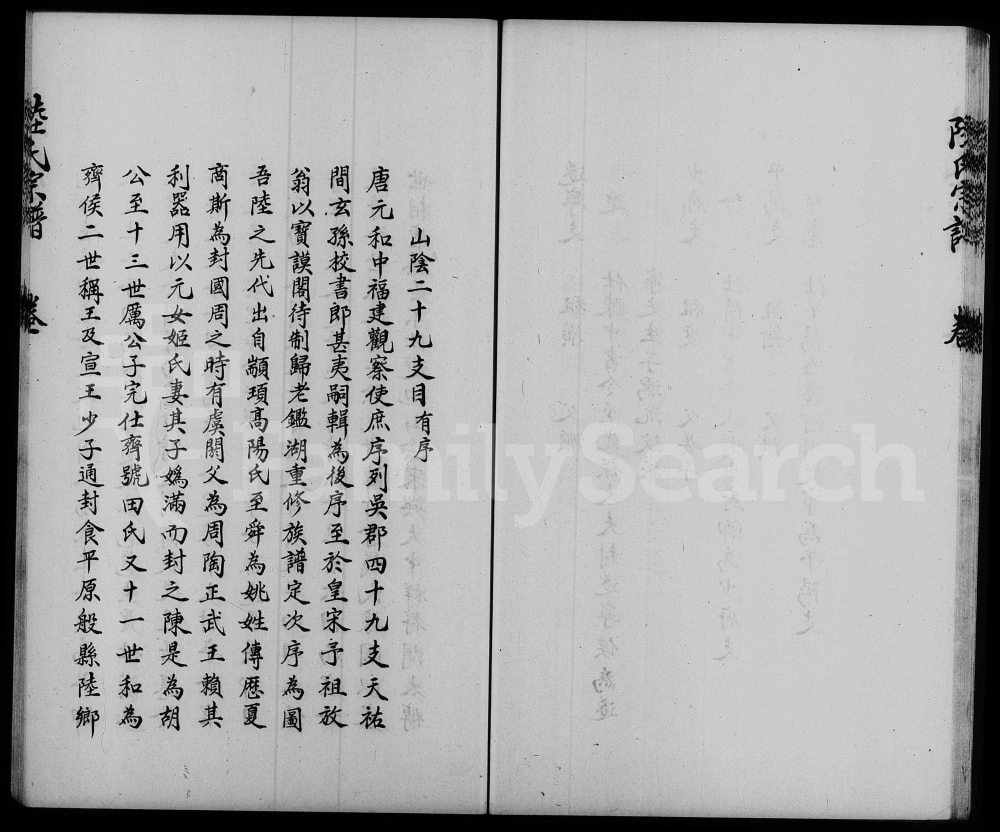 陸氏宗譜 卷
山陰二十九支目有序
唐元和中福建觀察使庶序列吳郡四十九支天祐
間玄孫校書郎甚夷嗣輯為後序至於皇宋予祖放
翁以寶謨閣待制歸老鑑湖重修族譜定次序為圖
吾陸之先代出自顓頊高陽氏至舜為姚姓傳歷夏
商斯為封國周之時有虞閼父為周陶正武王賴其
利器用以元女姬氏妻其子嬀滿而封之陳是為胡
公至十三世厲公子完仕齊號田氏又十一世和為
齊侯二世稱王及宣王少子通封食平原般縣陸鄉
陸氏宗譜 卷
FamilySearch